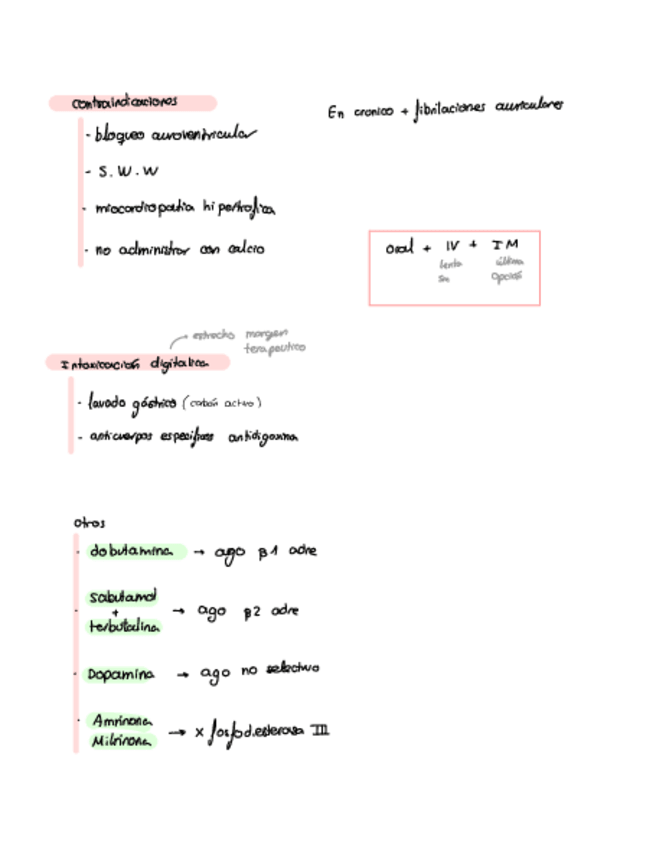 contraindicaciones
En cronico + fibrilaciones auriculares
- bloqueo auroventricular
- S.W.W
- miocardiopatia hipertrofica
- no administrar con calcio
oral + IV + IM
lenta última
5m opción
→ estrecho margen
terapeutico
Intoxicación digitalica
- lavado gástrico (carbón activo)
- anticuerpos especificos antidigoxina
otros
· dobutamina → ago β1 adre
· Salbutamol
+ → ago β2 adre
terbutalina
· Dopamina → ago no selectivo
· Amrinona
Milrinona → x fosfodiesterasa III